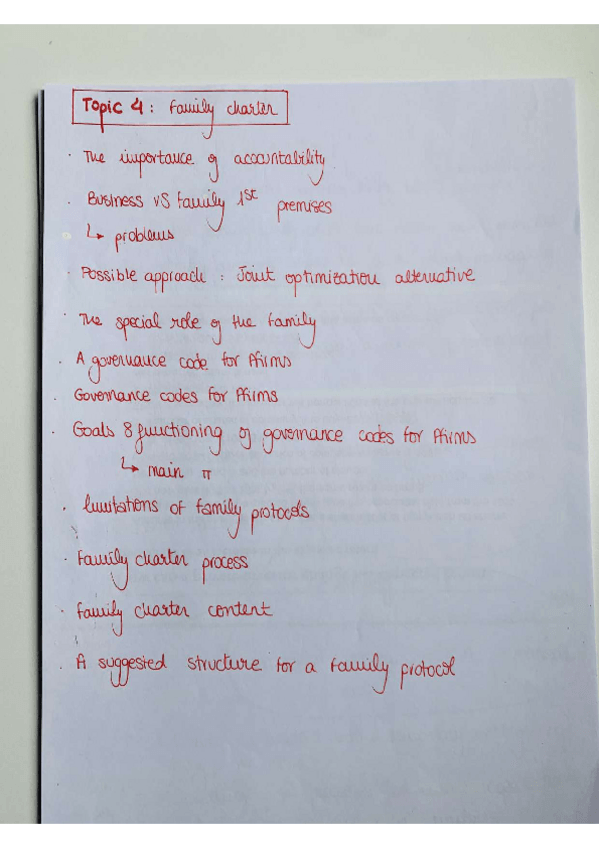 Topic 4: Family charter
· The importance of accountability
· Business vs family 1st premises
↳ problems
· Possible approach: Joint optimization alternative
· The special role of the family
· A governance code for Ffirms
· Governance codes for Ffirms
· Goals & functioning of governance codes for Ffirms
↳ main π
· limitations of family protocols
· Family charter process
· Family charter content
· A suggested structure for a family protocol